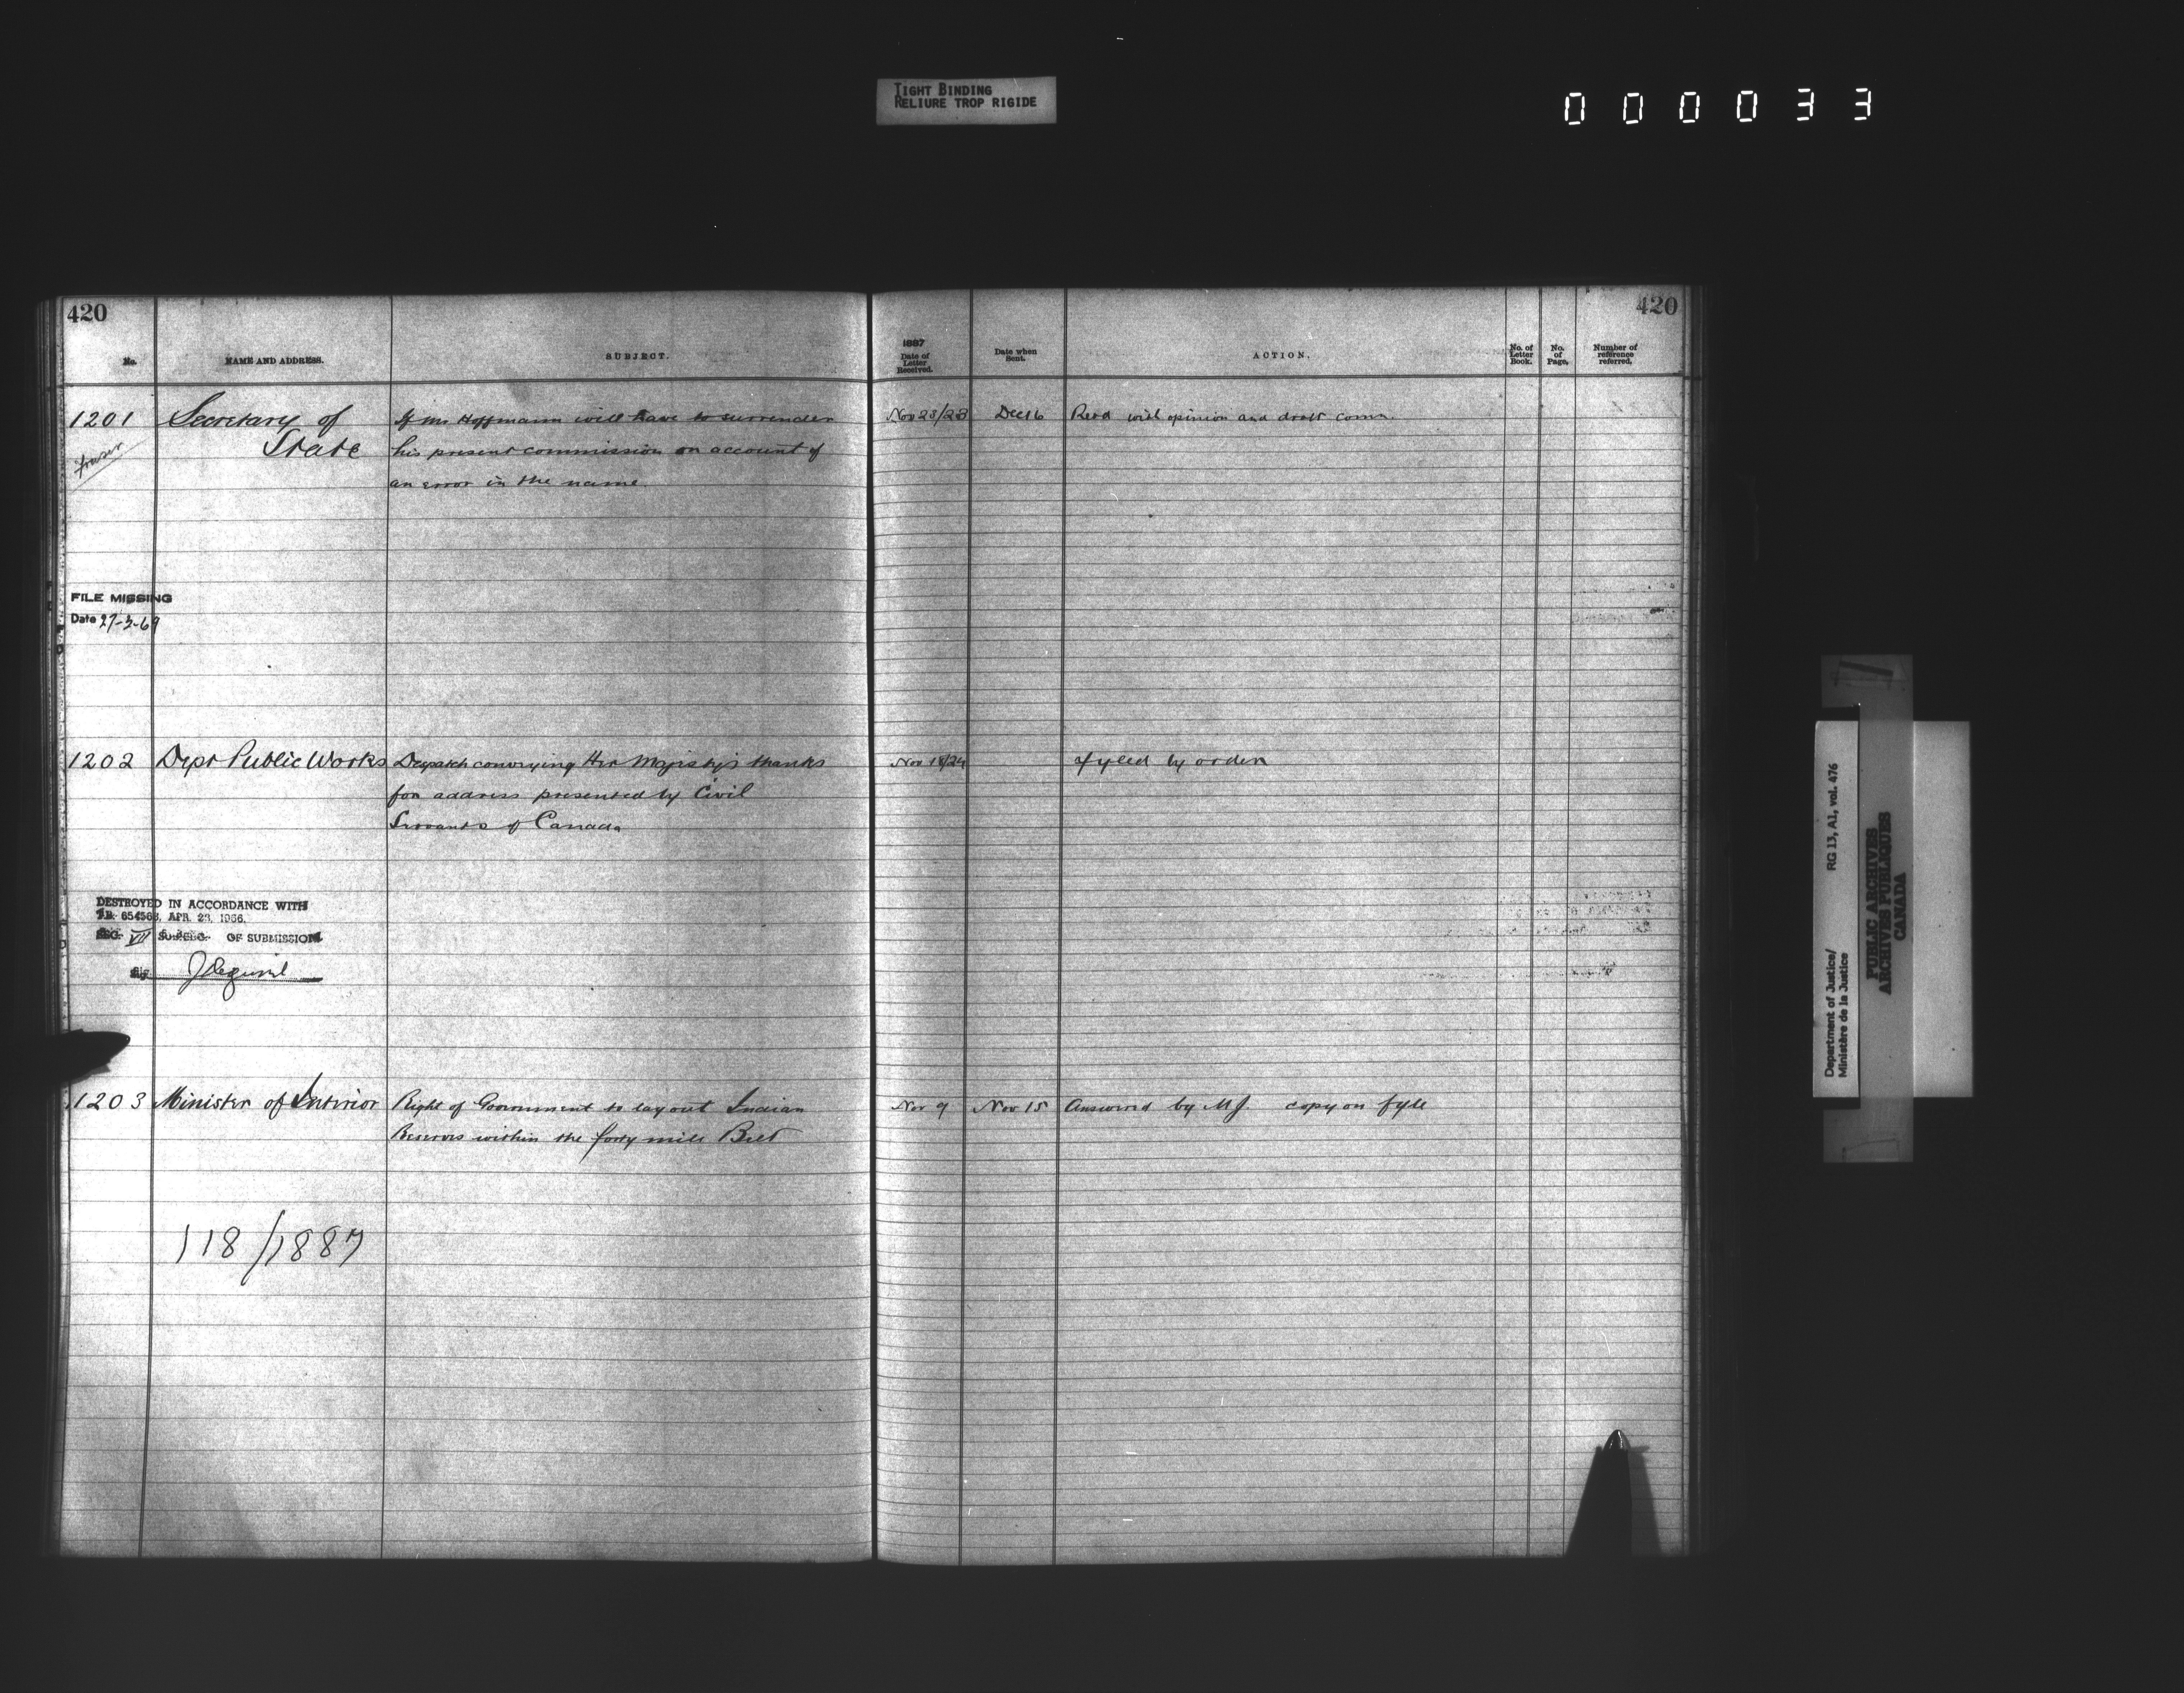 TIGHT BINDING
RELIURE TROP RIGIDE
0 0 0 0 3 3
420
No.
NAME AND ADDRESS.
SUBJECT.
1887
Date of Letter Received.
Date when Sent.
ACTION.
No. of Letter Book.
No. of Page.
Number of reference referred.
420
1201 Secretary of If Mr Hoffmann will have to surrender Nov 23/23 Dec 16 Retd with opinion and draft comn
fraser State his present commission on account of
an error in the name
FILE MISSING
Date 27-3-69
1202 Dept Public Works Despatch conveying Her Majesty's thanks Nov 18/24 fyled by order
for address presented by Civil
Servants of Canada
DESTROYED IN ACCORDANCE WITH
T.B. 654563, APR. 23, 1966.
SEC. VII SUB-SEC. OF SUBMISSION
Sig.
1203 Minister of Interior Right of Government to lay out Indian Nov 9 Nov 15 Answered by MJ. copy on fyle
Reserves within the forty mile Belt
118/1887
Department of Justice/ RG 13, A1, vol. 476
Ministère de la Justice
PUBLIC ARCHIVES
ARCHIVES PUBLIQUES
CANADA